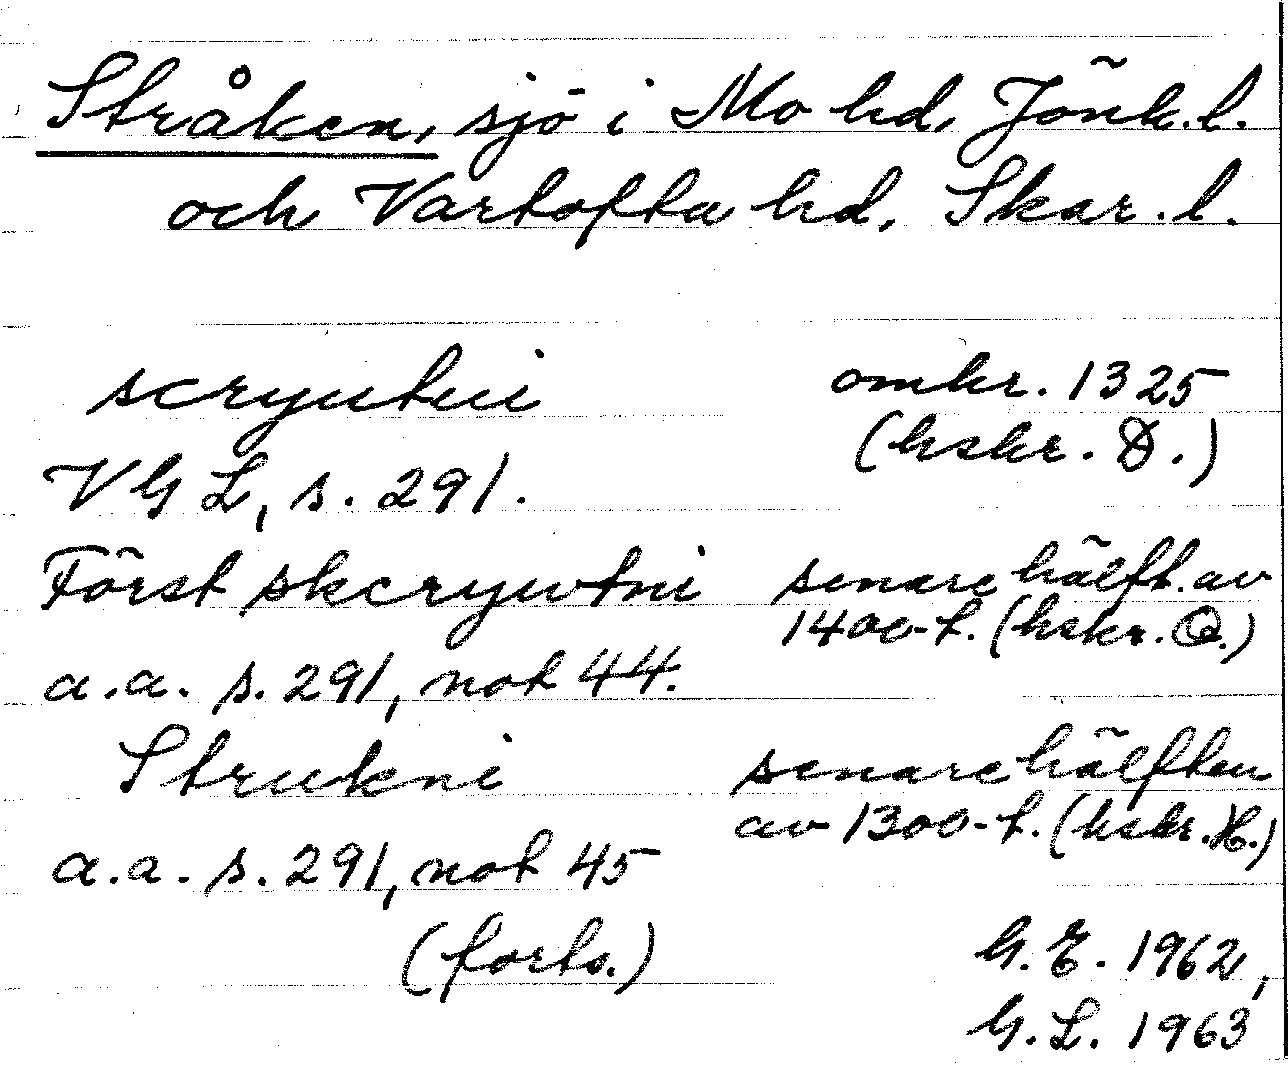 Stråken, sjö i Mo hd, Jönk. l.
och Vartofta hd, Skar. l.
scryutni omkr. 1325
(hskr. D.)
VGL, s. 291.
Först skcrywtni senare hälft. av
1400-t. (hskr. O.)
a.a. s. 291, not 44.
Strukni senare hälften
av 1300-t. (hskr. H.)
a.a. s. 291, not 45
(forts.)
G.E. 1962,
G.L. 1963